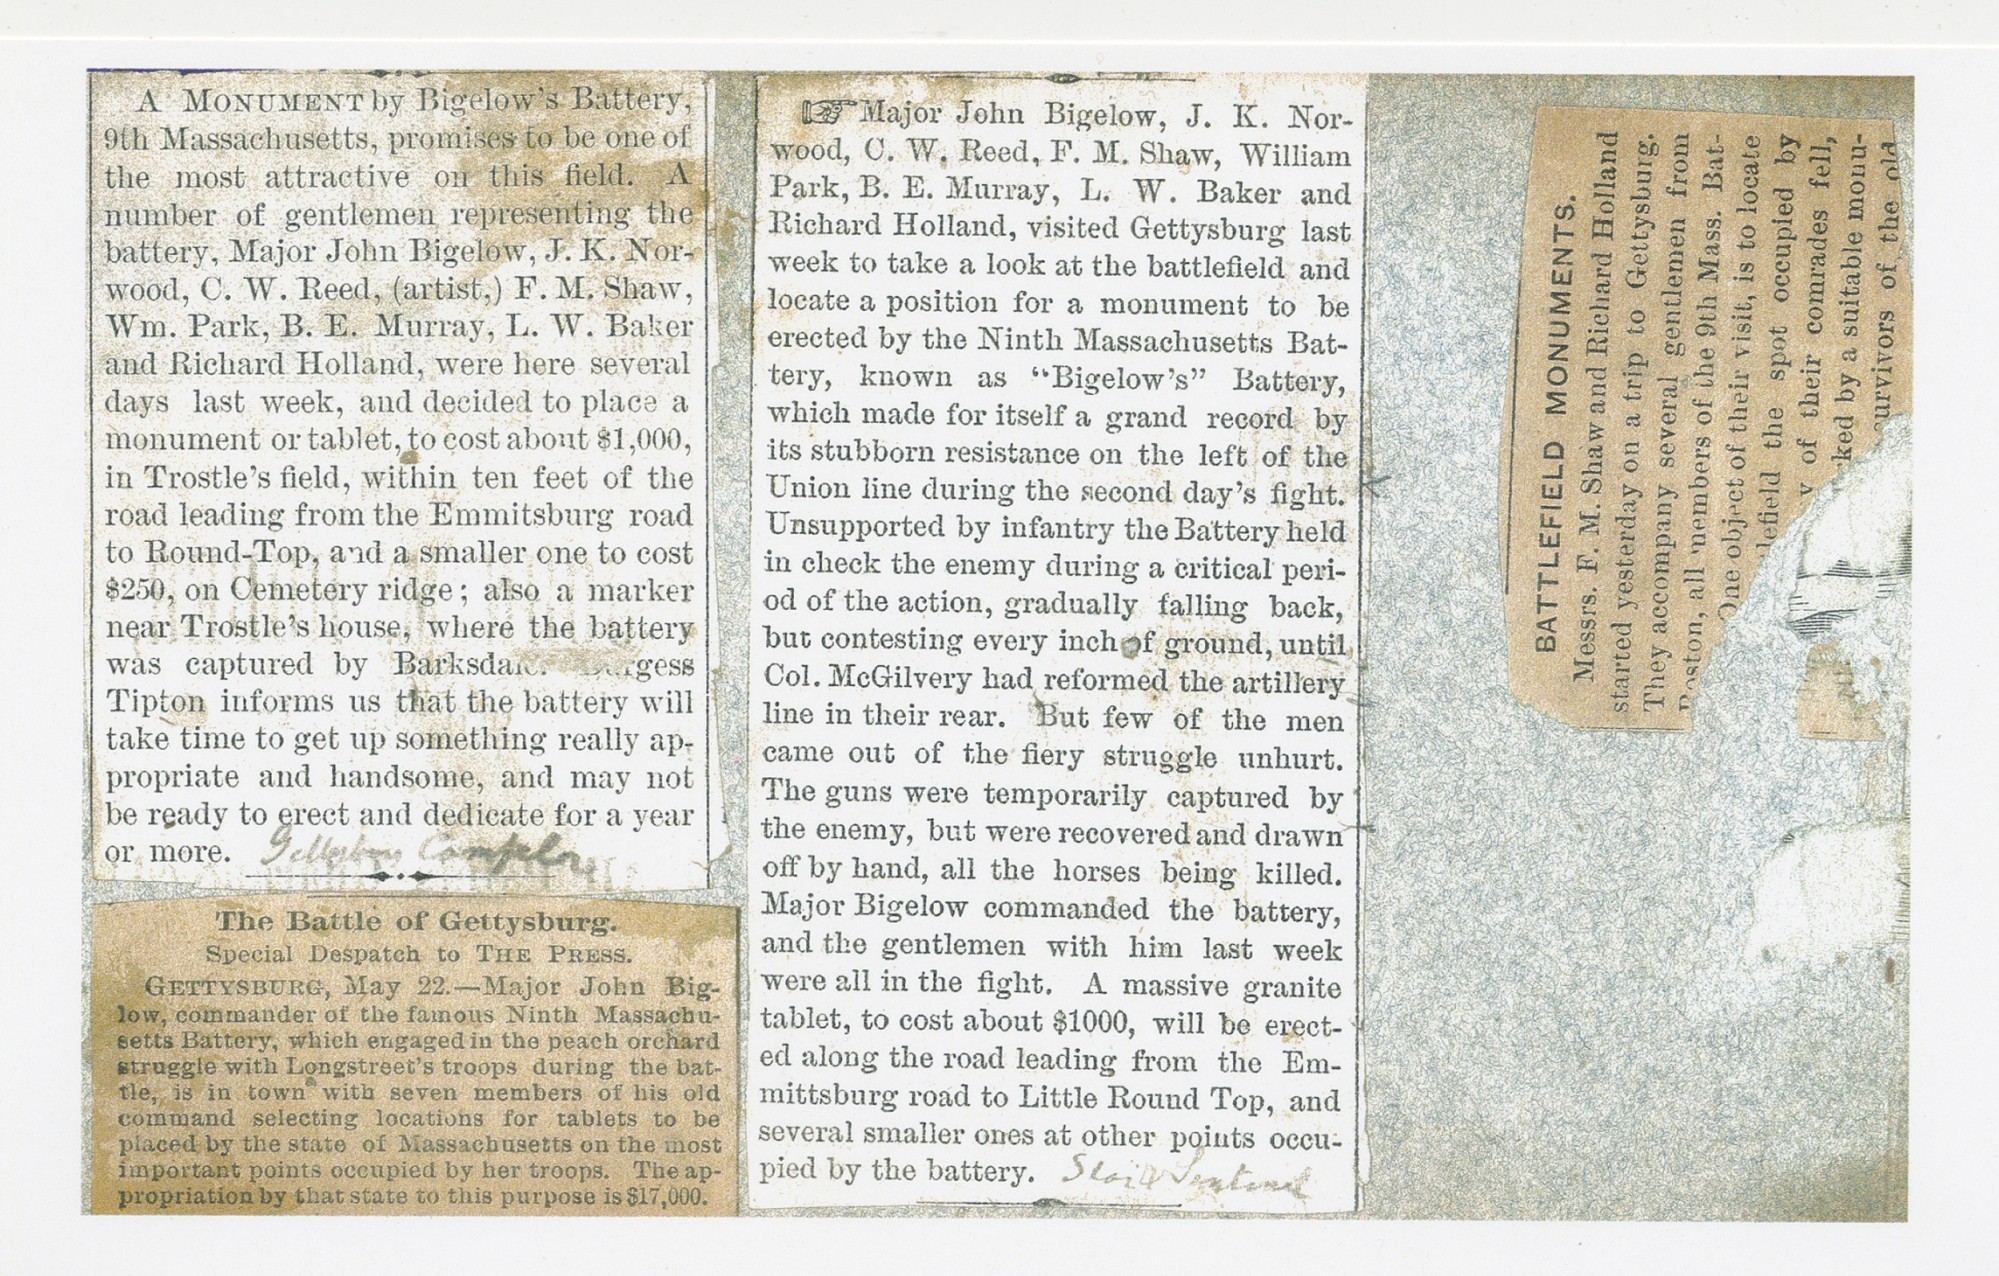 A MONUMENT by Bigelow's Battery,
9th Massachusetts, promises to be one of
the most attractive on this field. A
number of gentlemen representing the
battery, Major John Bigelow, J. K. Nor-
wood, C. W. Reed, (artist,) F. M. Shaw,
Wm. Park, B. E. Murray, L. W. Baker
and Richard Holland, were here several
days last week, and decided to place a
monument or tablet, to cost about $1,000,
in Trostle's field, within ten feet of the
road leading from the Emmitsburg road
to Round-Top, and a smaller one to cost
$250, on Cemetery ridge; also a marker
near Trostle's house, where the battery
was captured by
Tipton informs us that the battery will
take time to get up something really ap-
propriate and handsome, and may not
be ready to erect and dedicate for a year
or more.
The Battle of Gettysburg.
Special Despatch to THE PRESS.
GETTYSBURG, May 22.—Major John Big-
low, commander of the famous Ninth Massachu-
setts Battery, which engaged in the peach orchard
struggle with Longstreet's troops during the bat-
tle, is in town with seven members of his old
command selecting locations for tablets to be
placed by the state of Massachusetts on the most
important points occupied by her troops. The ap-
propriation by that state to this purpose is $17,000.
☞ Major John Bigelow, J. K. Nor-
wood, C. W. Reed, F. M. Shaw, William
Park, B. E. Murray, L. W. Baker and
Richard Holland, visited Gettysburg last
week to take a look at the battlefield and
locate a position for a monument to be
erected by the Ninth Massachusetts Bat-
tery, known as "Bigelow's" Battery,
which made for itself a grand record by
its stubborn resistance on the left of the
Union line during the second day's fight.
Unsupported by infantry the Battery held
in check the enemy during a critical peri-
od of the action, gradually falling back,
but contesting every inch of ground, until
Col. McGilvery had reformed the artillery
line in their rear. But few of the men
came out of the fiery struggle unhurt.
The guns were temporarily captured by
the enemy, but were recovered and drawn
off by hand, all the horses being killed.
Major Bigelow commanded the battery,
and the gentlemen with him last week
were all in the fight. A massive granite
tablet, to cost about $1000, will be erect-
ed along the road leading from the Em-
mittsburg road to Little Round Top, and
several smaller ones at other points occu-
pied by the battery. Star & Sentinel
BATTLEFIELD MONUMENTS.
Messrs. F. M. Shaw and Richard Holland
started yesterday on a trip to Gettysburg.
They accompany several gentlemen from
Boston, all members of the 9th Mass. Bat-
One object of their visit, is to locate
lefield the spot occupied by
y of their comrades fell,
rked by a suitable monu-
urvivors of the old